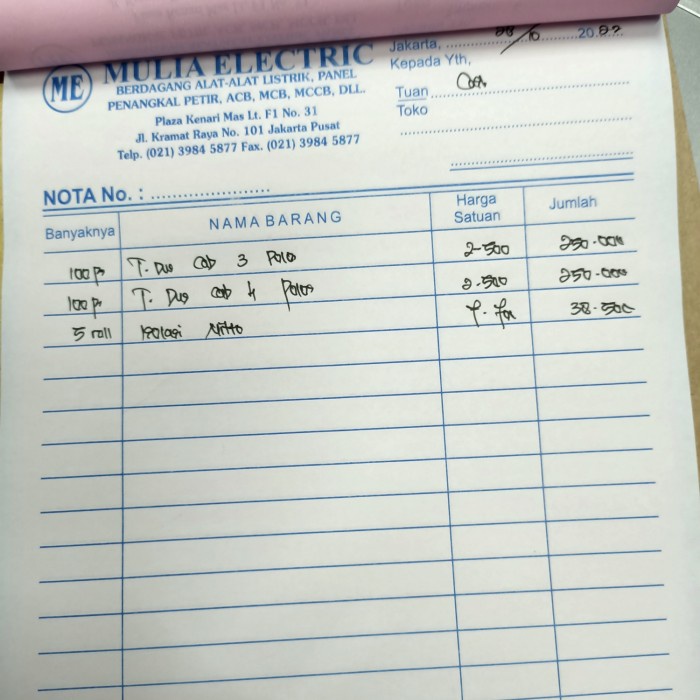 ME
MULIA ELECTRIC
BERDAGANG ALAT-ALAT LISTRIK, PANEL
PENANGKAL PETIR, ACB, MCB, MCCB, DLL.
Plaza Kenari Mas Lt. F1 No. 31
Jl. Kramat Raya No. 101 Jakarta Pusat
Telp. (021) 3984 5877 Fax. (021) 3984 5877
Jakarta, /10 20
Kepada Yth,
Tuan
Toko
NOTA No. :
Banyaknya NAMA BARANG Harga Satuan Jumlah
100 T. Dus cab 3 Polos 2-500 250.000
100 T. Dus cab 4 Polos 2.500 250.000
5 roll Isolasi Nitto 38.500